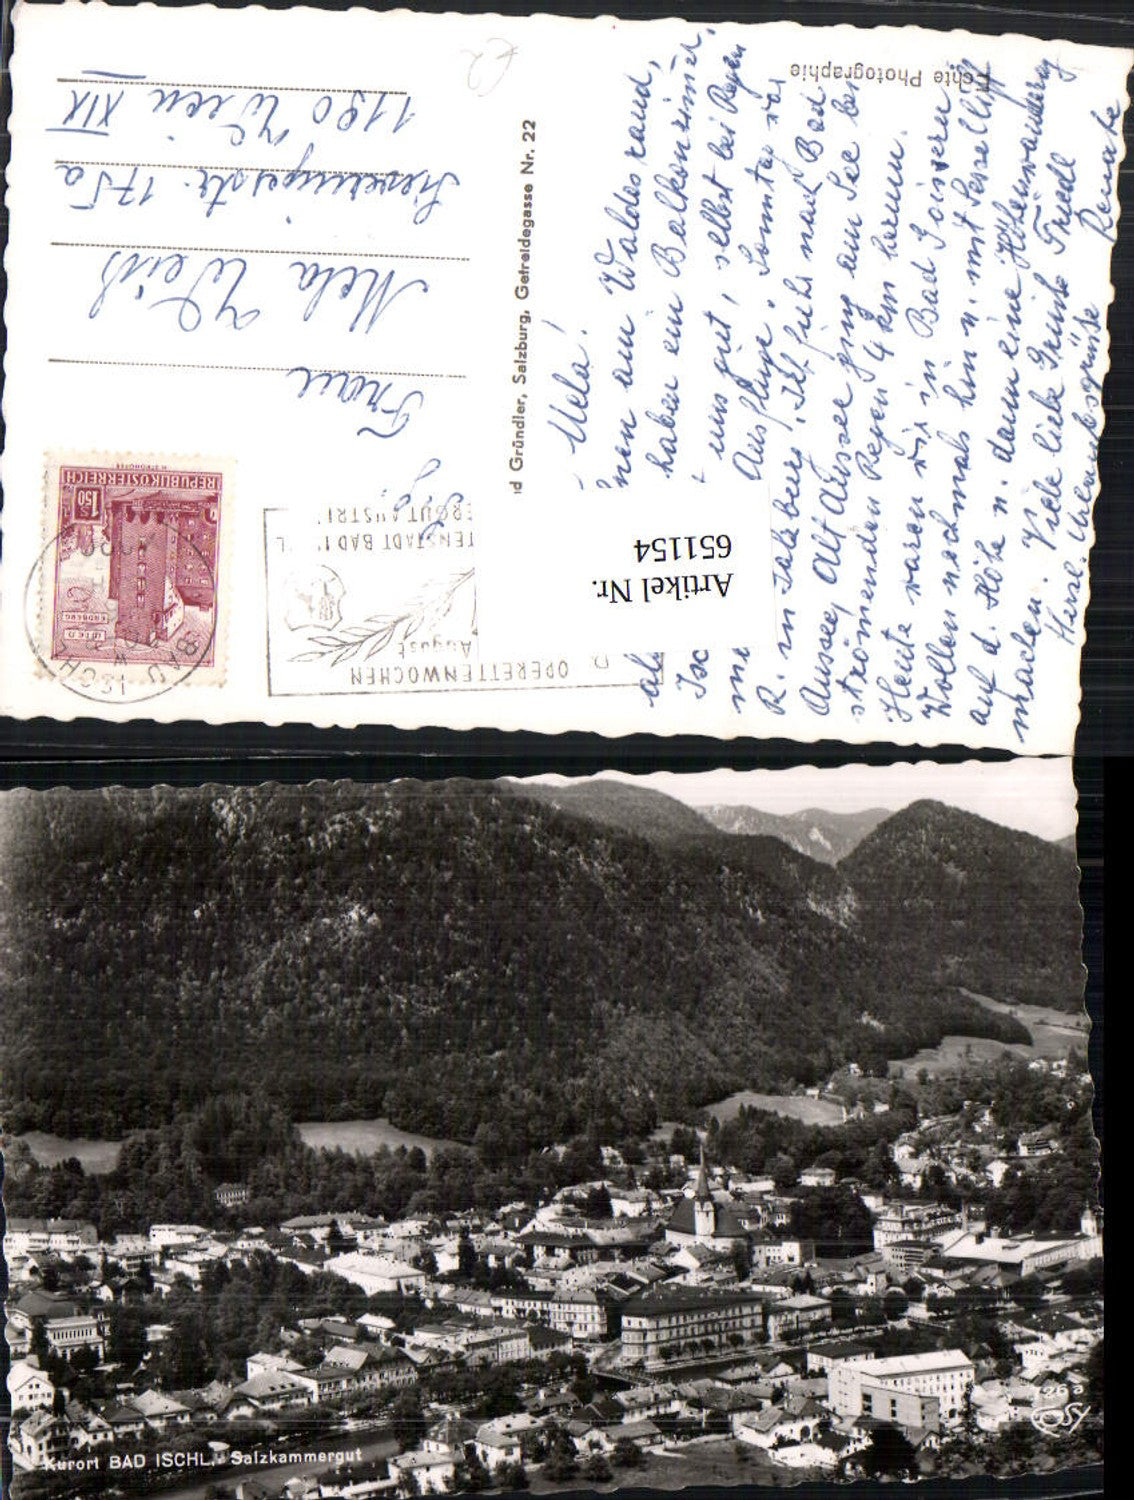 Echte Photographie
Mela!
am Waldesrand,
haben ein Balkonzimmer,
uns gut, selbst bei Regen
Ausflüge. Sonntag war
R. in Salzburg, Ich fuhr nach Bad
Aussee, Alt Aussee ging am See bei
strömenden Regen 4 km herum.
Heute waren wir in Bad Goisern
Wollen nochmals hin u. mit Sessellift
auf d. Höhe u. dann eine Höhenwanderung
machen. Viele liebe Grüße Friedl
Herzl. Urlaubsgrüße Renate
d Gründler, Salzburg, Getreidegasse Nr. 22
Frau
Mela Weiß
Sieveringerstr. 175a
1190 Wien XIX
REPUBLIK ÖSTERREICH
1.50
WIEN
ERDBERG
BAD ISCHL
OPERETTENWOCHEN
August
TENSTADT BAD I L
ERGUT AUSTRI
Artikel Nr.
651154
Kurort BAD ISCHL, Salzkammergut
726a
COSY